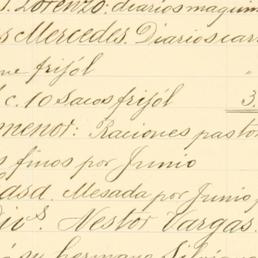 S. Lorenzo: diarios maquin
s Mercedes. Diarios carr
ue frijól "
c. 10 Sacos frijól 3.
menor: Raciones pasto
s finos por Junio
asa. Mesada por Junio,
Div.s Nestor Vargas.
á su hermano